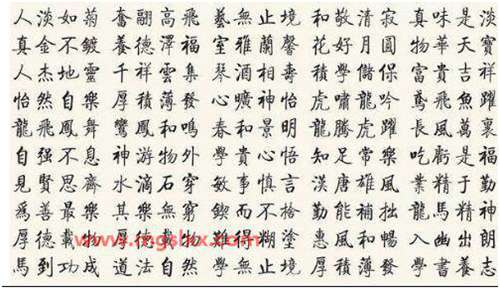 人淡如菊 奮翮高飛 藝無止境 和敬清寂 真味是淡
真金不鍍 養德澤福 室雅蘭馨 花好月圓 物華天寶
人杰地靈 千祥雲集 琴酒相壽 積學儲保 富貴吉祥
怡然自樂 厚積薄發 曠神怡 虎嘯龍吟 鳶飛魚躍
龍飛鳳舞 鸞鳳和鳴 春和景明 龍騰虎躍 長風萬裏
自强不息 神游物外 和貴心悟 知足常樂 吃虧是福
見賢思齊 水滴石穿 敏事慎言 漢唐雄風 業精于勤
爲善最樂 其樂無窮 鍥而不捨 勤能補拙 龍馬精神
厚德載物 難得糊塗 惠風和暢 入幽出朗
馬到功成 道法自然 學無止境 厚積薄發 學書養志